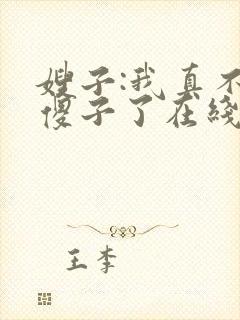 嫂子:我真不
傻子了在线
王李